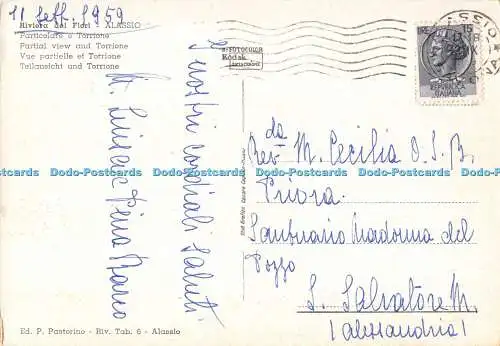 11 Sett. 1959
Riviera dei Fiori - ALASSIO
Particolare e Torrione
Partial view and Torrione
Vue partielle et Torrione
Teilansicht und Torrione
I nostri cordiali saluti
Pina
Kodak
LIRE 15
REPUBBLICA
ITALIANA
da
Rev. M. Cecilia O.S.B.
Priora
Santuario Madonna del
Pozzo
S. Salvatore M.
(Alessandria)
Ed. P. Pastorino - Riv. Tab. 6 - Alassio
Postcards Postcards Postcards Postcards Postcards Postcards